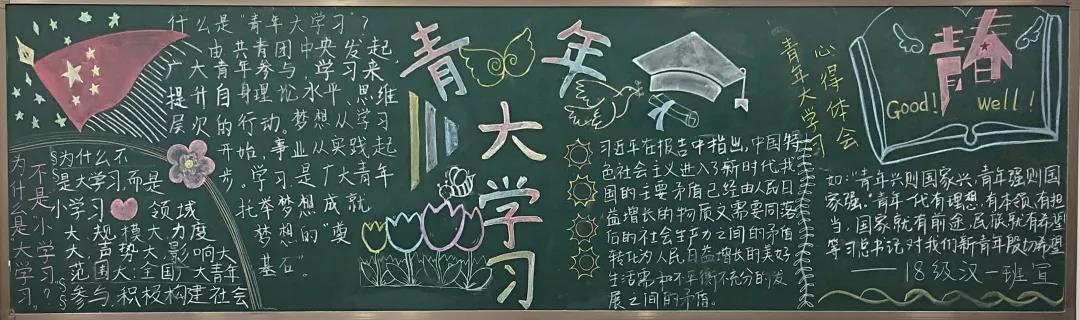 什么是“青年大学习”?
由共青团中央发起,
广大青年参与,学习来
提升自身理论水平、思维
层次的行动。梦想从学习
开始,事业从实践起
步。学习是广大青年
托举梦想成就
梦想的“奠
基石”。
为什么是“大学习”
不是“小学习”?
为什么不
是大学习,而是
小学习 领域
大,规模大,力度
大,声势大,影响大
范围大:全国广大青年
参与,积极构建社会
青年
大学习
习近平在报告中指出,中国特
色社会主义进入了新时代我
国的主要矛盾已经由人民日
益增长的物质文需要同落
后的社会生产力之间的矛盾
转化为人民日益增长的美好
生活需和不平衡不充分的发
展之间的矛盾。
青年大学习
心得体会
青春
Good! well!
如:“青年兴则国家兴,青年强则国
家强。”青年一代有理想,有本领,有担
当,国家就有前途,民族就有希望
等习总书记对我们新青年殷切希望
——18级汉一班宣